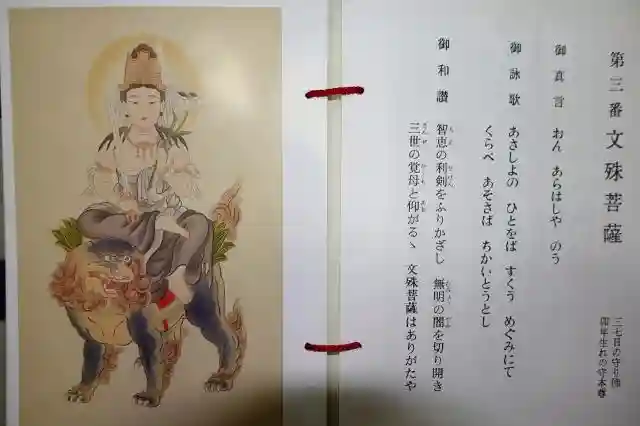 第三番 文殊菩薩
三七日の守り佛
卯年生れの守本尊
御真言 おん あらはしや のう
御詠歌 あさしよの ひとをば すくう めぐみにて
くらべ あそさば ちかいとうとし
御和讃 智恵の利剣をふりかざし 無明の闇を切り開き
三世の覚母と仰がるゝ 文殊菩薩はありがたや